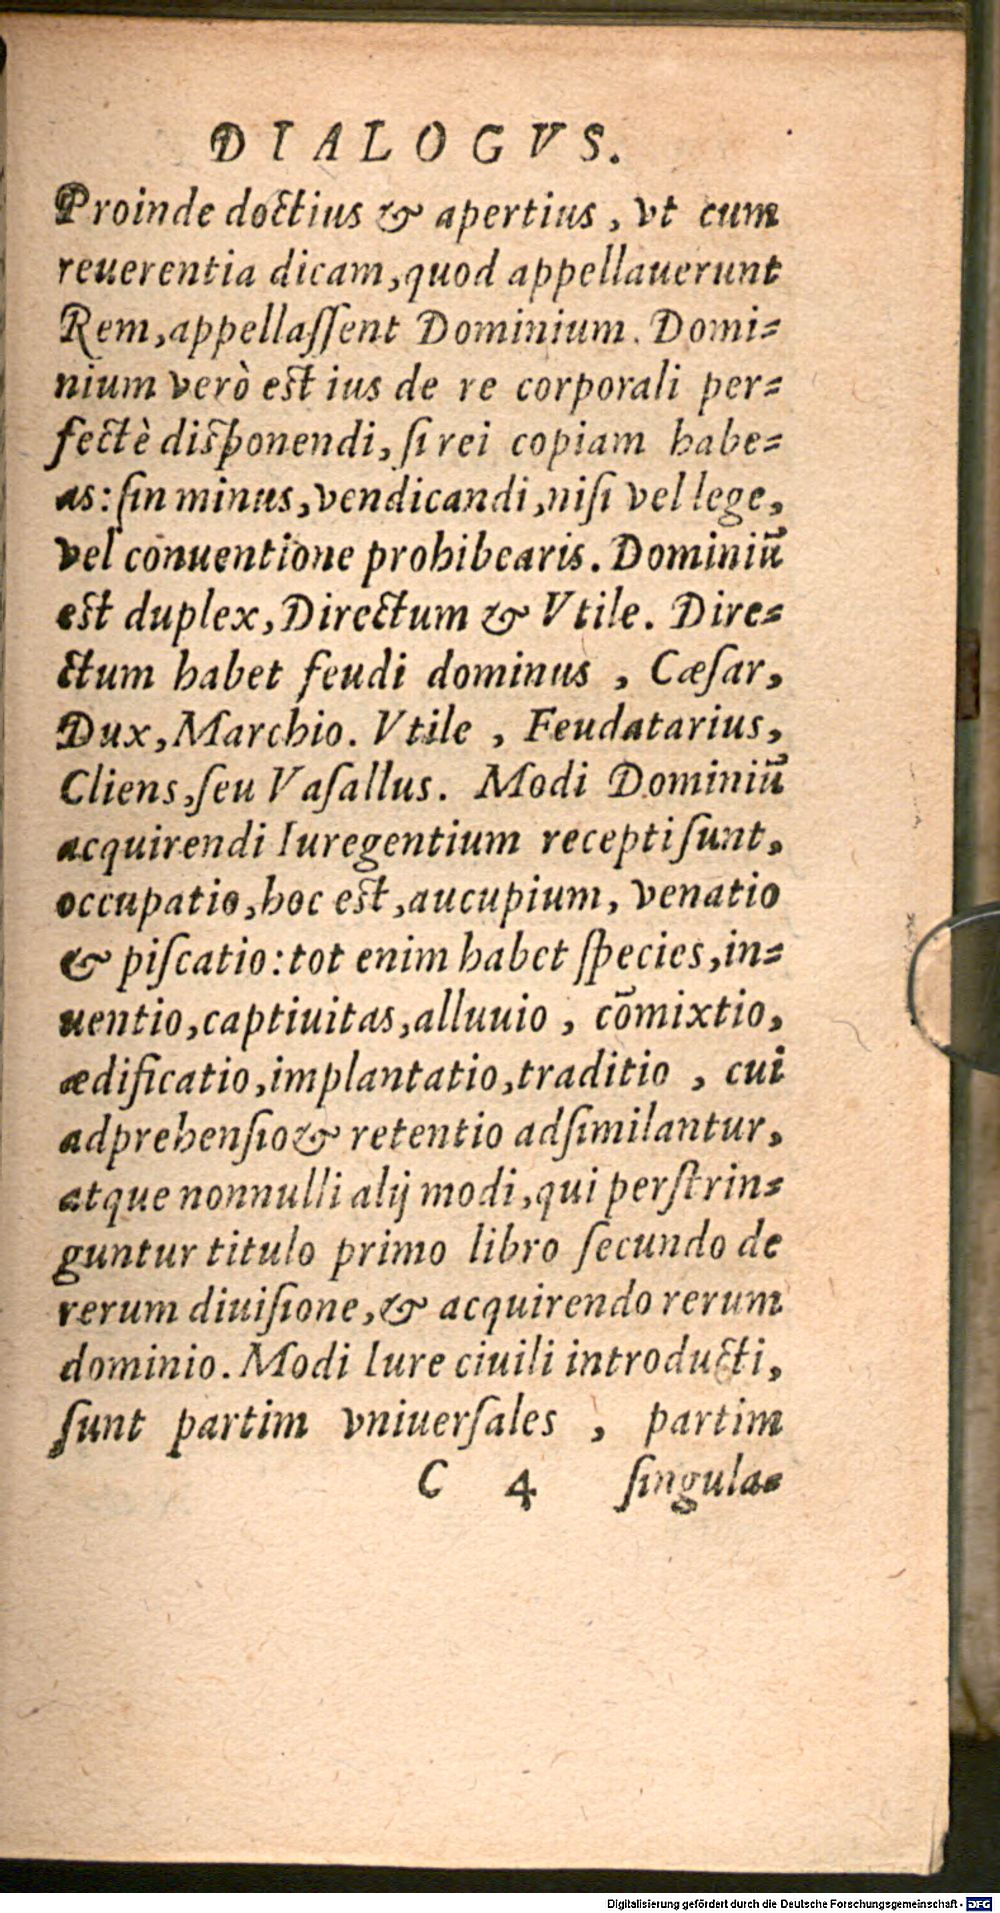 DIALOGVS.
Proinde doctius & apertius, vt cum
reuerentia dicam, quod appellauerunt
Rem, appellaſſent Dominium. Domi-
nium verò est ius de re corporali per-
fectè disponendi, ſi rei copiam habe-
as: ſin minus, vendicandi, niſi vel lege,
vel conuentione prohibearis. Dominiū
est duplex, Directum & Vtile. Dire-
ctum habet feudi dominus, Cæſar,
Dux, Marchio. Vtile, Feudatarius,
Cliens, ſeu Vaſallus. Modi Dominiū
acquirendi Iuregentium recepti ſunt,
occupatio, hoc est, aucupium, venatio
& piſcatio: tot enim habet ſpecies, in-
uentio, captiuitas, alluuio, cōmixtio,
ædificatio, implantatio, traditio, cui
adprehenſio & retentio adſimilantur,
atque nonnulli alij modi, qui perſtrin-
guntur titulo primo libro ſecundo de
rerum diuiſione, & acquirendo rerum
dominio. Modi Iure ciuili introducti,
ſunt partim vniuerſales, partim
C 4 ſingula-
Digitalisierung gefördert durch die Deutsche Forschungsgemeinschaft - DFG